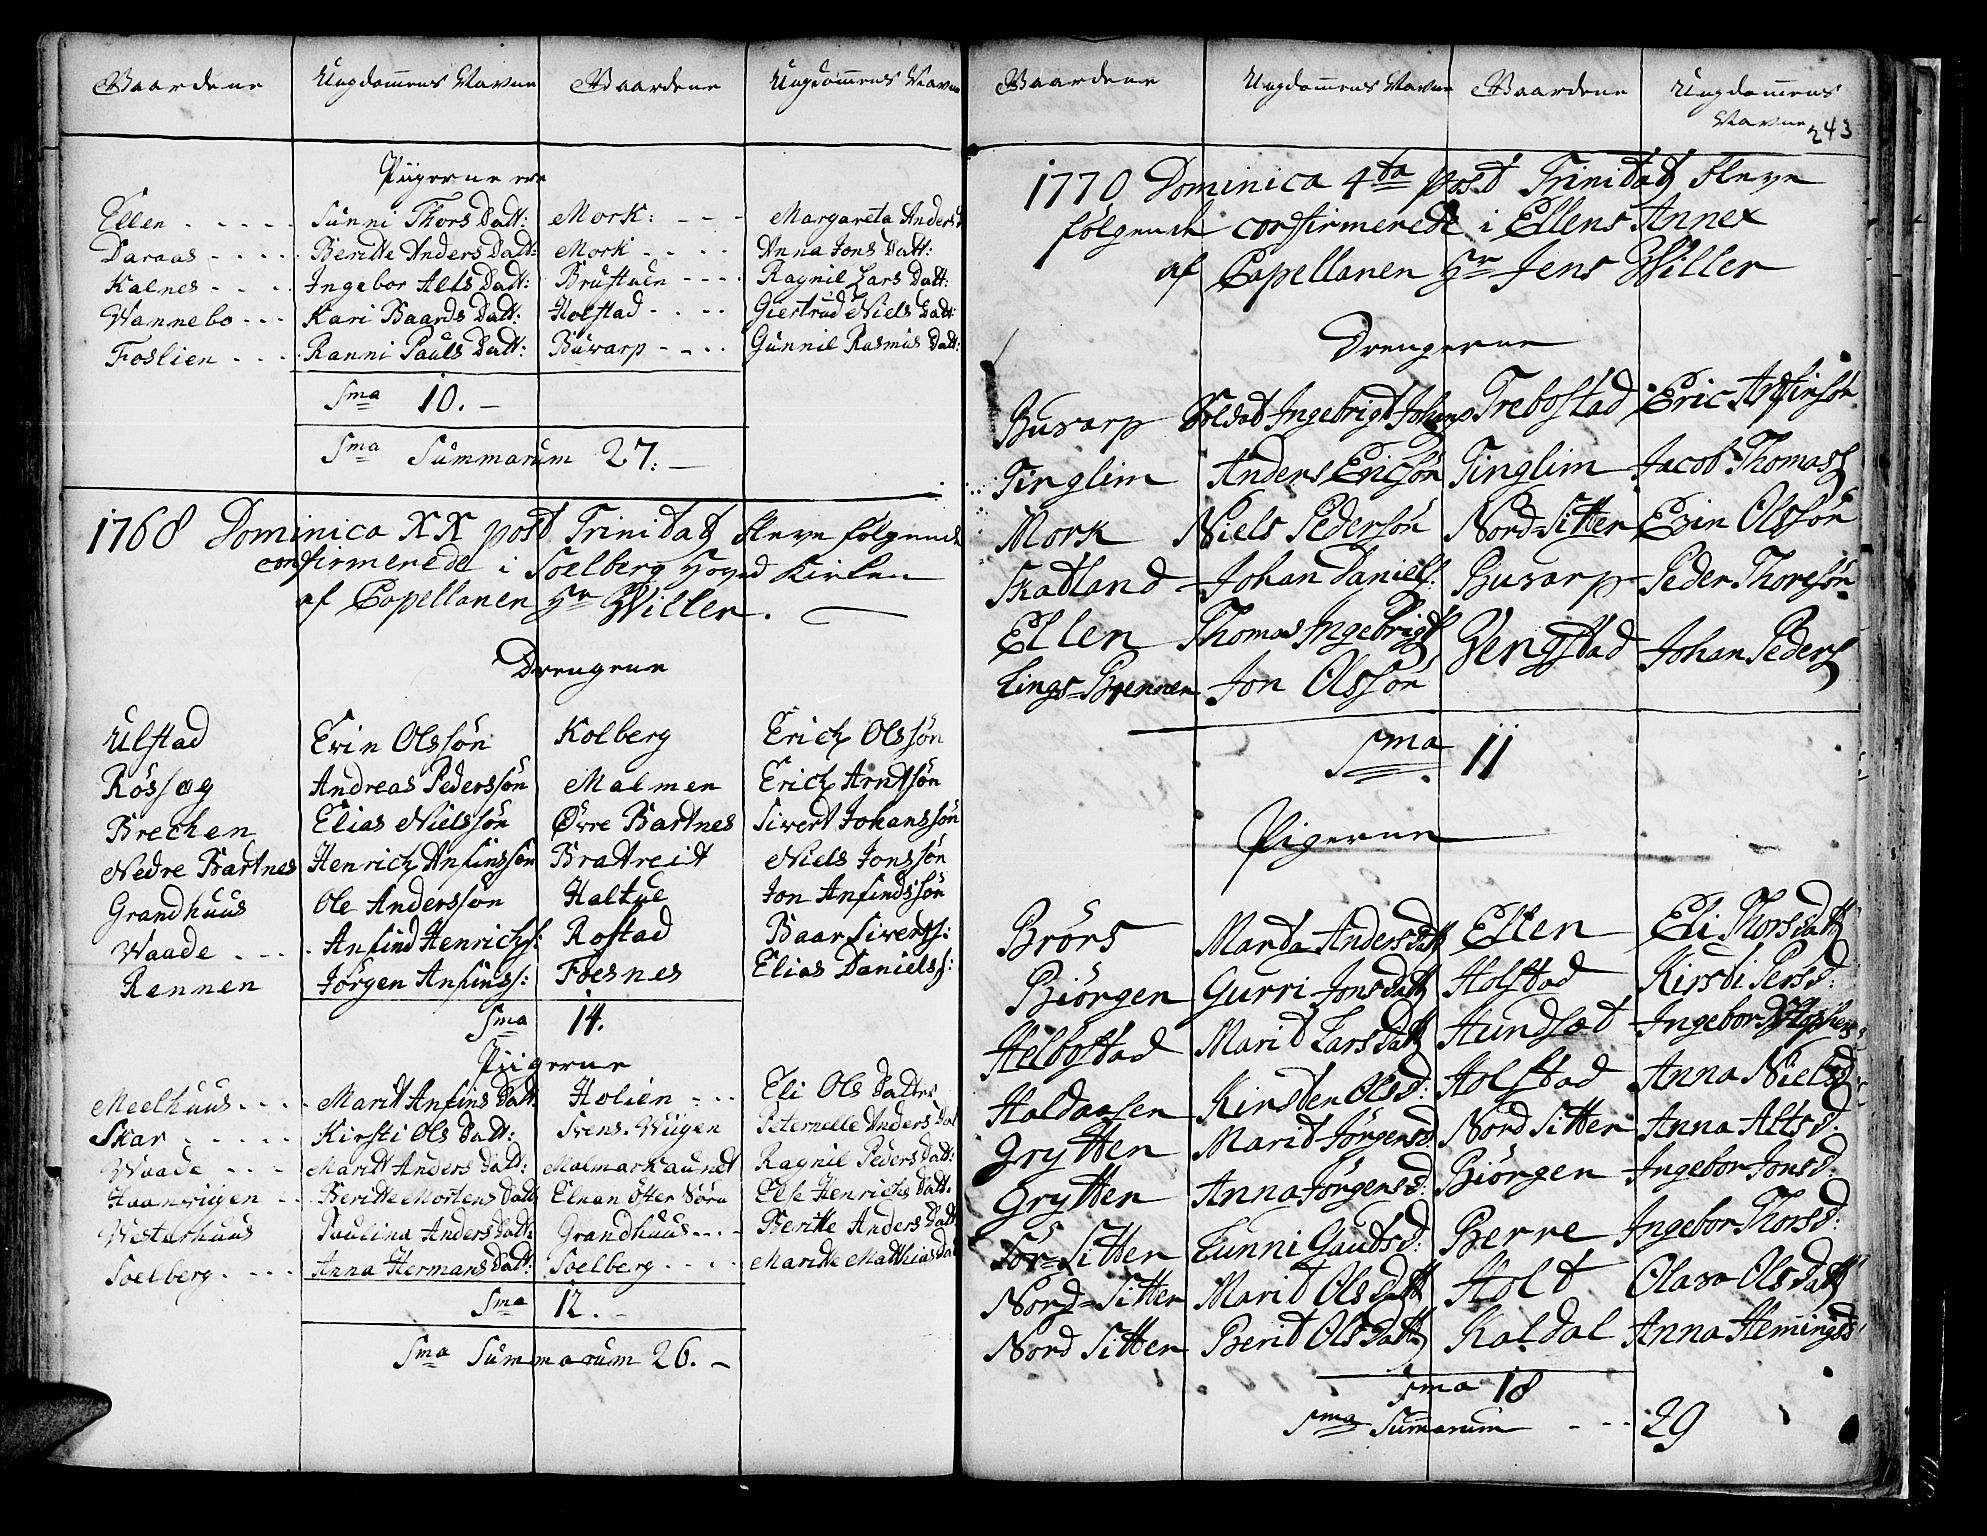 Gaardene Ungdommens Navne Gaardene Ungdommens Navne
Piigerne ere
Ellen - - - - - Sunni Thors Datt: Mork: - - - Margareta Anders
Daraas - - - - Beritte Anders Datt: Mork - - - - Anna Jons Datt:
Kalnes - - - Ingebor Alts Datt: Brustuen - - - - Ragnil Lars Datt:
Wannebo - - - Kari Baards Datt: Holstad - - - - Giertrud Niels Datt
Foslien - - - - Ranni Pauls Datt: Buvarp - - - - Gunnil Rasmus Datt:
Sma 10. -
Sma Summarum 27. -
1768 Dominica XX post Trinitat bleve følgende
confirmerede i Soelberg Hoved Kirken
af Capellanen Hr Willer.
Drengene
Ulstad Evin Olssøn Kolberg Erich Olssøn
Røsseg Andreas Pederssøn Malmen Erich Arntsøn
Brechen Elias Nielssøn Øvre Bartnes Sivert Johanssøn
Nedre Bartnes Henrich Anfinssøn Bratreit Niels Jonssøn
Grandhuus Ole Anderssøn Haltue Jon Anfindssøn
Waade - - - Anfind Henrichs: Rostad Baar Siverts:
Rennen Jørgen Anfinss: Foesnes Elias Danielss:
Sma 14.
Piigerne
Meelhuus - - - - Marit Anfins Datt: Holien - - - Eli Ols Datter
Skar - - - - - Kirsti Ols Datt: Svens-Wiigen Peternelle Anders Dat
Waade - - - Marit Anders Datt: Malmarkaunet Ragnil Peders Datt:
Haanviigen - - Beritte Mortens Datt Elnan Øster Søra Else Henrichs Datt.
Westerhuus Paulina Anders Datt: Grandhuus - - - Beritte Anders Datt
Soelberg - - - - Anna Hermans Datt: Soelberg - - - - Maritte Matthias Dat
Sma 12. -
Sma Summarum 26. -
Gaardene Ungdommens Navne Gaardene Ungdommens
Navne 243
1770 Dominica 4ta post Trinitat bleve
følgende confirmerede i Ellens Annex
af Capellanen Hr Jens Willer
Drengerne
Buvarp Soldat Ingebrigt Johans Trebostad Eric Arfinsøn
Tinglim Anders Ericsøn Tinglim Jacob Thomass
Mork Niels Pedersøn Nord-Sitter Evin Olssøn
Skatland - Johan Daniels: Buvarp - Peder Thoresøn
Ellen Thomas Ingebrigts Vengstad Johan Peders
Lings-Brennen Jon Olssøn
Sma 11
Pigerne
Brørs Marta Anders Datt Elten Eli Thors Datt
Biørgen Gurri Jons Datt Holstad Kirsti Persd:
Helbostad Marit Lars Datt Hundset Ingebor
Haldaasen Kirsten Olsd: Holstad Anna Nielsd
Grytten Marit Jørgensd: Nord Sitter Anna Altsd:
Grytten Anna Jørgensd: Biørgen Ingebor Jonsd:
Sør-Sitter Lunni Gautsd: Berre Ingebor Thorsd:
Nord-Sitter Marit Ols Datt Holt Olava Ols Datt
Nord Sitter Berit Ols Datt Kaldal Anna Hemingsd
Sma 18
Sma Sumarum - - - 29